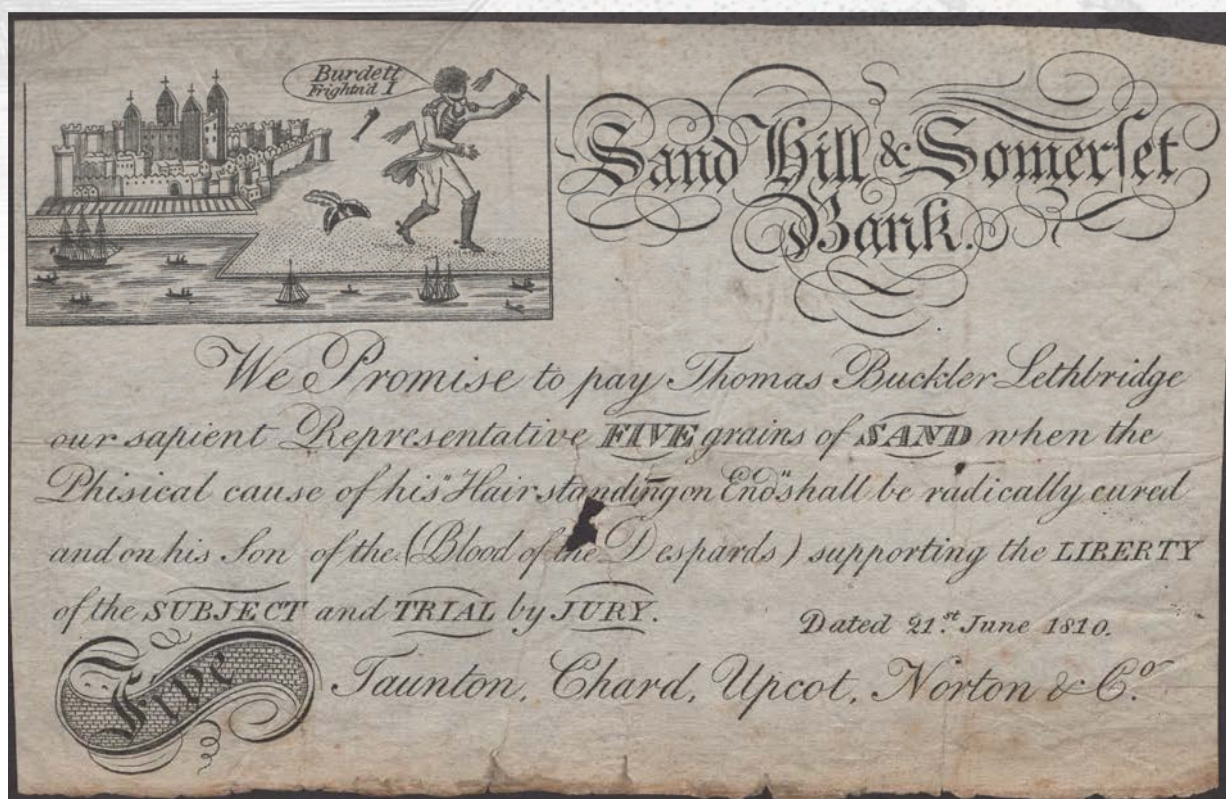 Burdett
Frightn'd I
Sand Hill & Somerſet
Bank.
We Promise to pay Thomas Buckler Lethbridge
our sapient Representative FIVE grains of SAND when the
Phisical cause of his "Hair standing on End" shall be radically cured
and on his Son of the (Blood of the Despards) supporting the LIBERTY
of the SUBJECT and TRIAL by JURY.
Dated 21.st June 1810.
Five
Taunton, Chard, Upcot, Norton & Co.